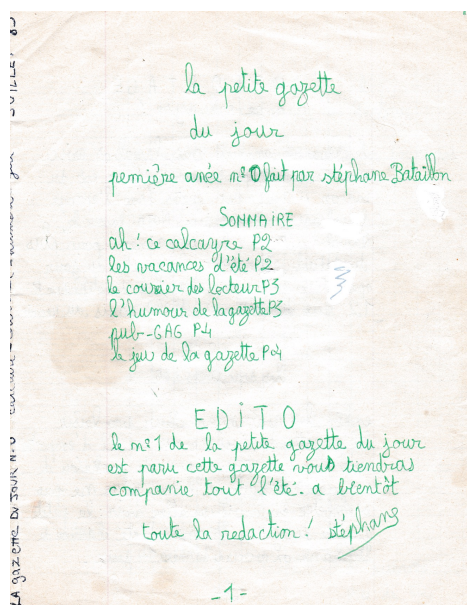 la petite gazette
du jour
pemière anée n:0 fait par stéphane Bataillon
SOMMAiRE
ah! ce calcayre P2
les vacances d'été P2
le courrier des lecteur P3
l'humour de la gazette P3
pub-GAG P4
le jeu de la gazette P4
EDiTO
le n:1 de la petite gazette du jour
est paru cette gazette vous tiendras
companie tout l'été. a bientôt
toute la redaction! stéphane
-1-
LA gazette DU JOUR N:0